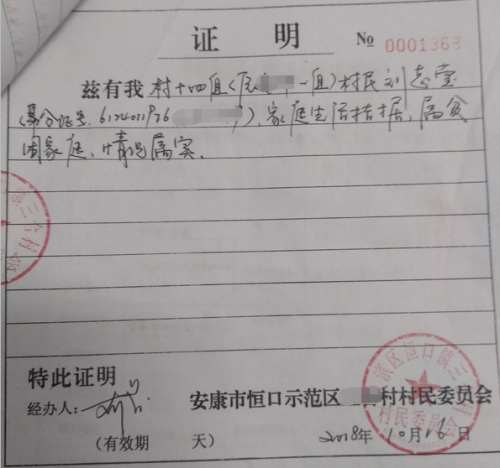 证 明
No 0001363
兹有我 村十四组(原 一组)村民刘志堂
(身份证号. 612401196 ), 家庭生活拮据, 属贫
困家庭, 情况属实.
特此证明
经办人:
安康市恒口示范区 村村民委员会
(有效期 天)
2018年10月16日
滨区恒口镇三
村民委员会